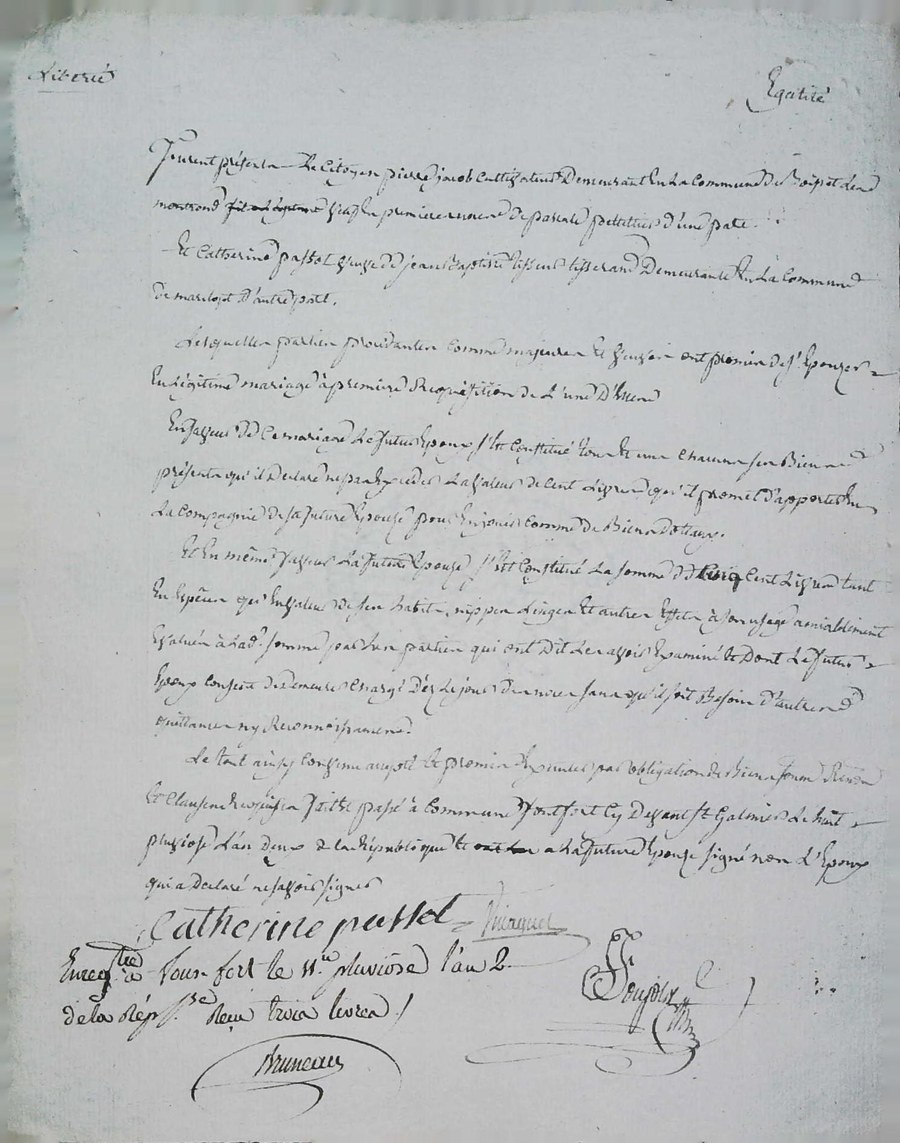 Liberté
Egalité
Furent présents Le Citoyen pierre jacob Cultivateur Demeurant En La Commune De Boisset Les
montrond fils Légitime Veuf En premiere noces De d'une part.
Et Catherine passot Veuve de jean Baptiste tissot tisserand Demeurante En La Commune
De marclopt D'autre part.
Lesquelles parties procédantes Comme majeures Et Veuves ont promis de s'Epouzer
En Légitime mariage à premiere Requisition de L'une D'Icelles
En faveur De Ce mariage Le futur Epoux s'Est Constitué tous Et uns Chacuns ses Biens
présents qu'il Declare ne pas Exceder La Valeur de Cent Livres qu'il promet d'apporter En
La Compagnie de sa future Epouse pour En jouir Comme de Biens Dotaux.
Et En même faveur La future Epouse s'Est Constitué La somme de Cinq Cent Livres tant
En Espèces qu'En Valeur de ses habits, nippes Linges Et autres Effets à son usage amiablement
Evalués à Lad. somme par Les parties qui ont Dit Les avoir Examiné Et Dont Le futur
Epoux Consent de Demeurer Chargé Dez Le jour Des noces sans qu'il soit Besoin D'autres
quittances ny Reconnoissances
Le tout ainsy Convenu accepté Et promis Executer par obligation de Biens
Et Clauses fait Et passé à Commune Fontfort Cy Devant St Galmier Le huit
pluviose L'an Deux de la République Et ont La a La future Epouse signé non L'Epoux
qui a Declaré ne savoir signer
Catherine passot
Enregtré à Fonfort le 11e pluviose l'an 2
de la Répque Reçu trois livres
Bruneau